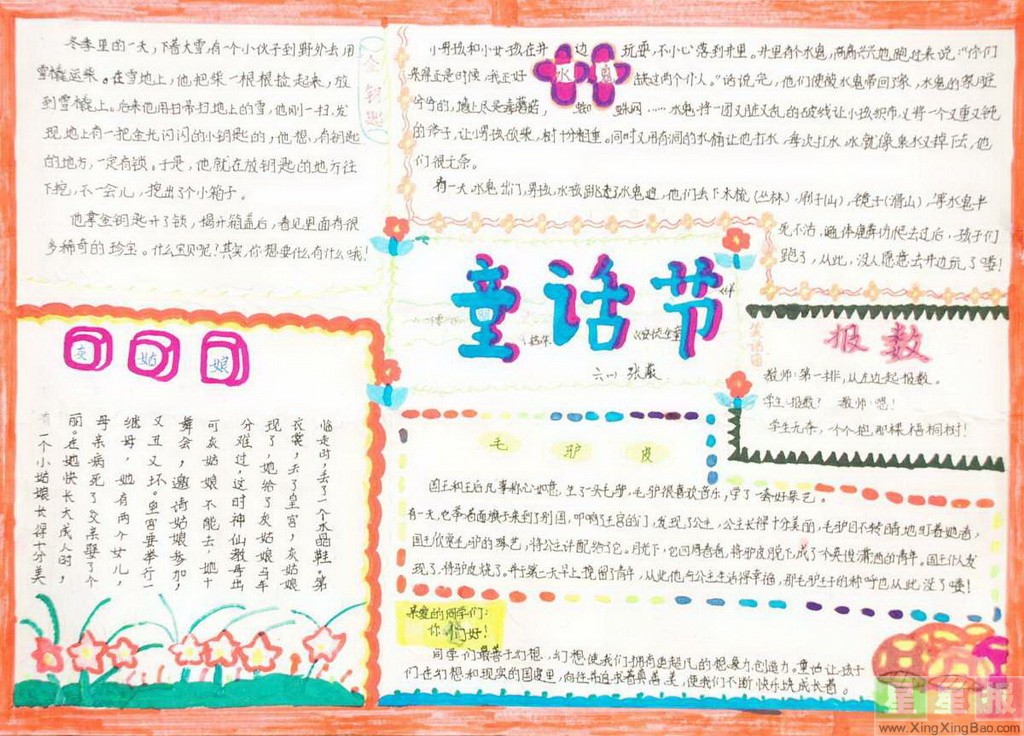 金钥匙
冬季里的一天,下着大雪,有一个小伙子到野外去用
雪橇运柴。在雪地上,他把柴一根根捡起来,放
到雪橇上。后来他用扫帚扫地上的雪,他刚一扫,发
现地上有一把金光闪闪的小钥匙的,他想,有钥匙
的地方,一定有锁。于是,他就在放钥匙的地方往
下挖,不一会儿,挖出了个小箱子。
他拿金钥匙开了锁,揭开箱盖后,看见里面有很
多稀奇的珍宝。什么宝贝呢?其实,你想要什么,有什么哦!
水鬼
小男孩和小女孩在井边玩耍,不小心落到井里。井里有水鬼,高高兴兴地跑过来说:“你们
来得正是时候,我正好缺这两个仆人。”话说完,他们便被水鬼带回了家,水鬼的家脏
兮兮的,墙上尽是毒蘑菇,蜘蛛网……水鬼将一团又脏又乱的破线让小孩织布,又将一个又重又钝
的斧子,让小男孩砍柴,树十分粗重。同时又用有洞的水桶让他打水,每次打水,水就像泉水又掉下去,他
们很无奈。
有一天,水鬼出门,男孩,水孩跳
他们丢下木梳(丛林),刷子(山),镜子(滑山),等水鬼半
死不活,遍体鳞伤爬去过后,孩子们
跑了,从此,没人愿意去井边玩了喽!
童话节
六(一)张晟
报数
教师:第一排,从左边起报数。
学生:报数? 教师:嗯!
学生:九乔,个个抱,那棵梧桐树!
灰姑娘
有一个小姑娘长得十分美
丽。在她快长大成人时,
母亲病死了父亲娶了个
继母,她有两个女儿,
又丑又坏。皇宫要举行一
舞会,邀请姑娘参加,
可灰姑娘不能去,她十
分难过,这时神仙教母出
现了,她给了灰姑娘马车
衣裳,去了皇宫,灰姑娘
临走时,丢了一个水晶鞋。第
毛驴皮
国王和王后凡事称心如意,生了一头毛驴,毛驴很喜欢音乐,学了一套好琴艺。
有一天,它拿着面旗子来到了别国,叩响了王宫的门,发现了公主,公主长得十分美丽,毛驴目不转睛地盯着她看,
国王欣赏毛驴的琴艺,将公主许配给了它。月光下,它回房爸爸,将驴皮脱下,成了个英俊潇洒的青年。国王仆人发
现了,将驴皮烧了。并于第二天早上挽留了青年,从此他与公主生活得幸福,那毛驴王子的称呼也从此没了喽!
亲爱的同学们:
你们好!
同学们最善于幻想,幻想使我们拥有更超凡的想象力,创造力。童话让孩子
们在幻想和现实的国度里,向往并追求着真善美,使我们不断快乐烧成长着。
星星报
www.XingXingBao.com